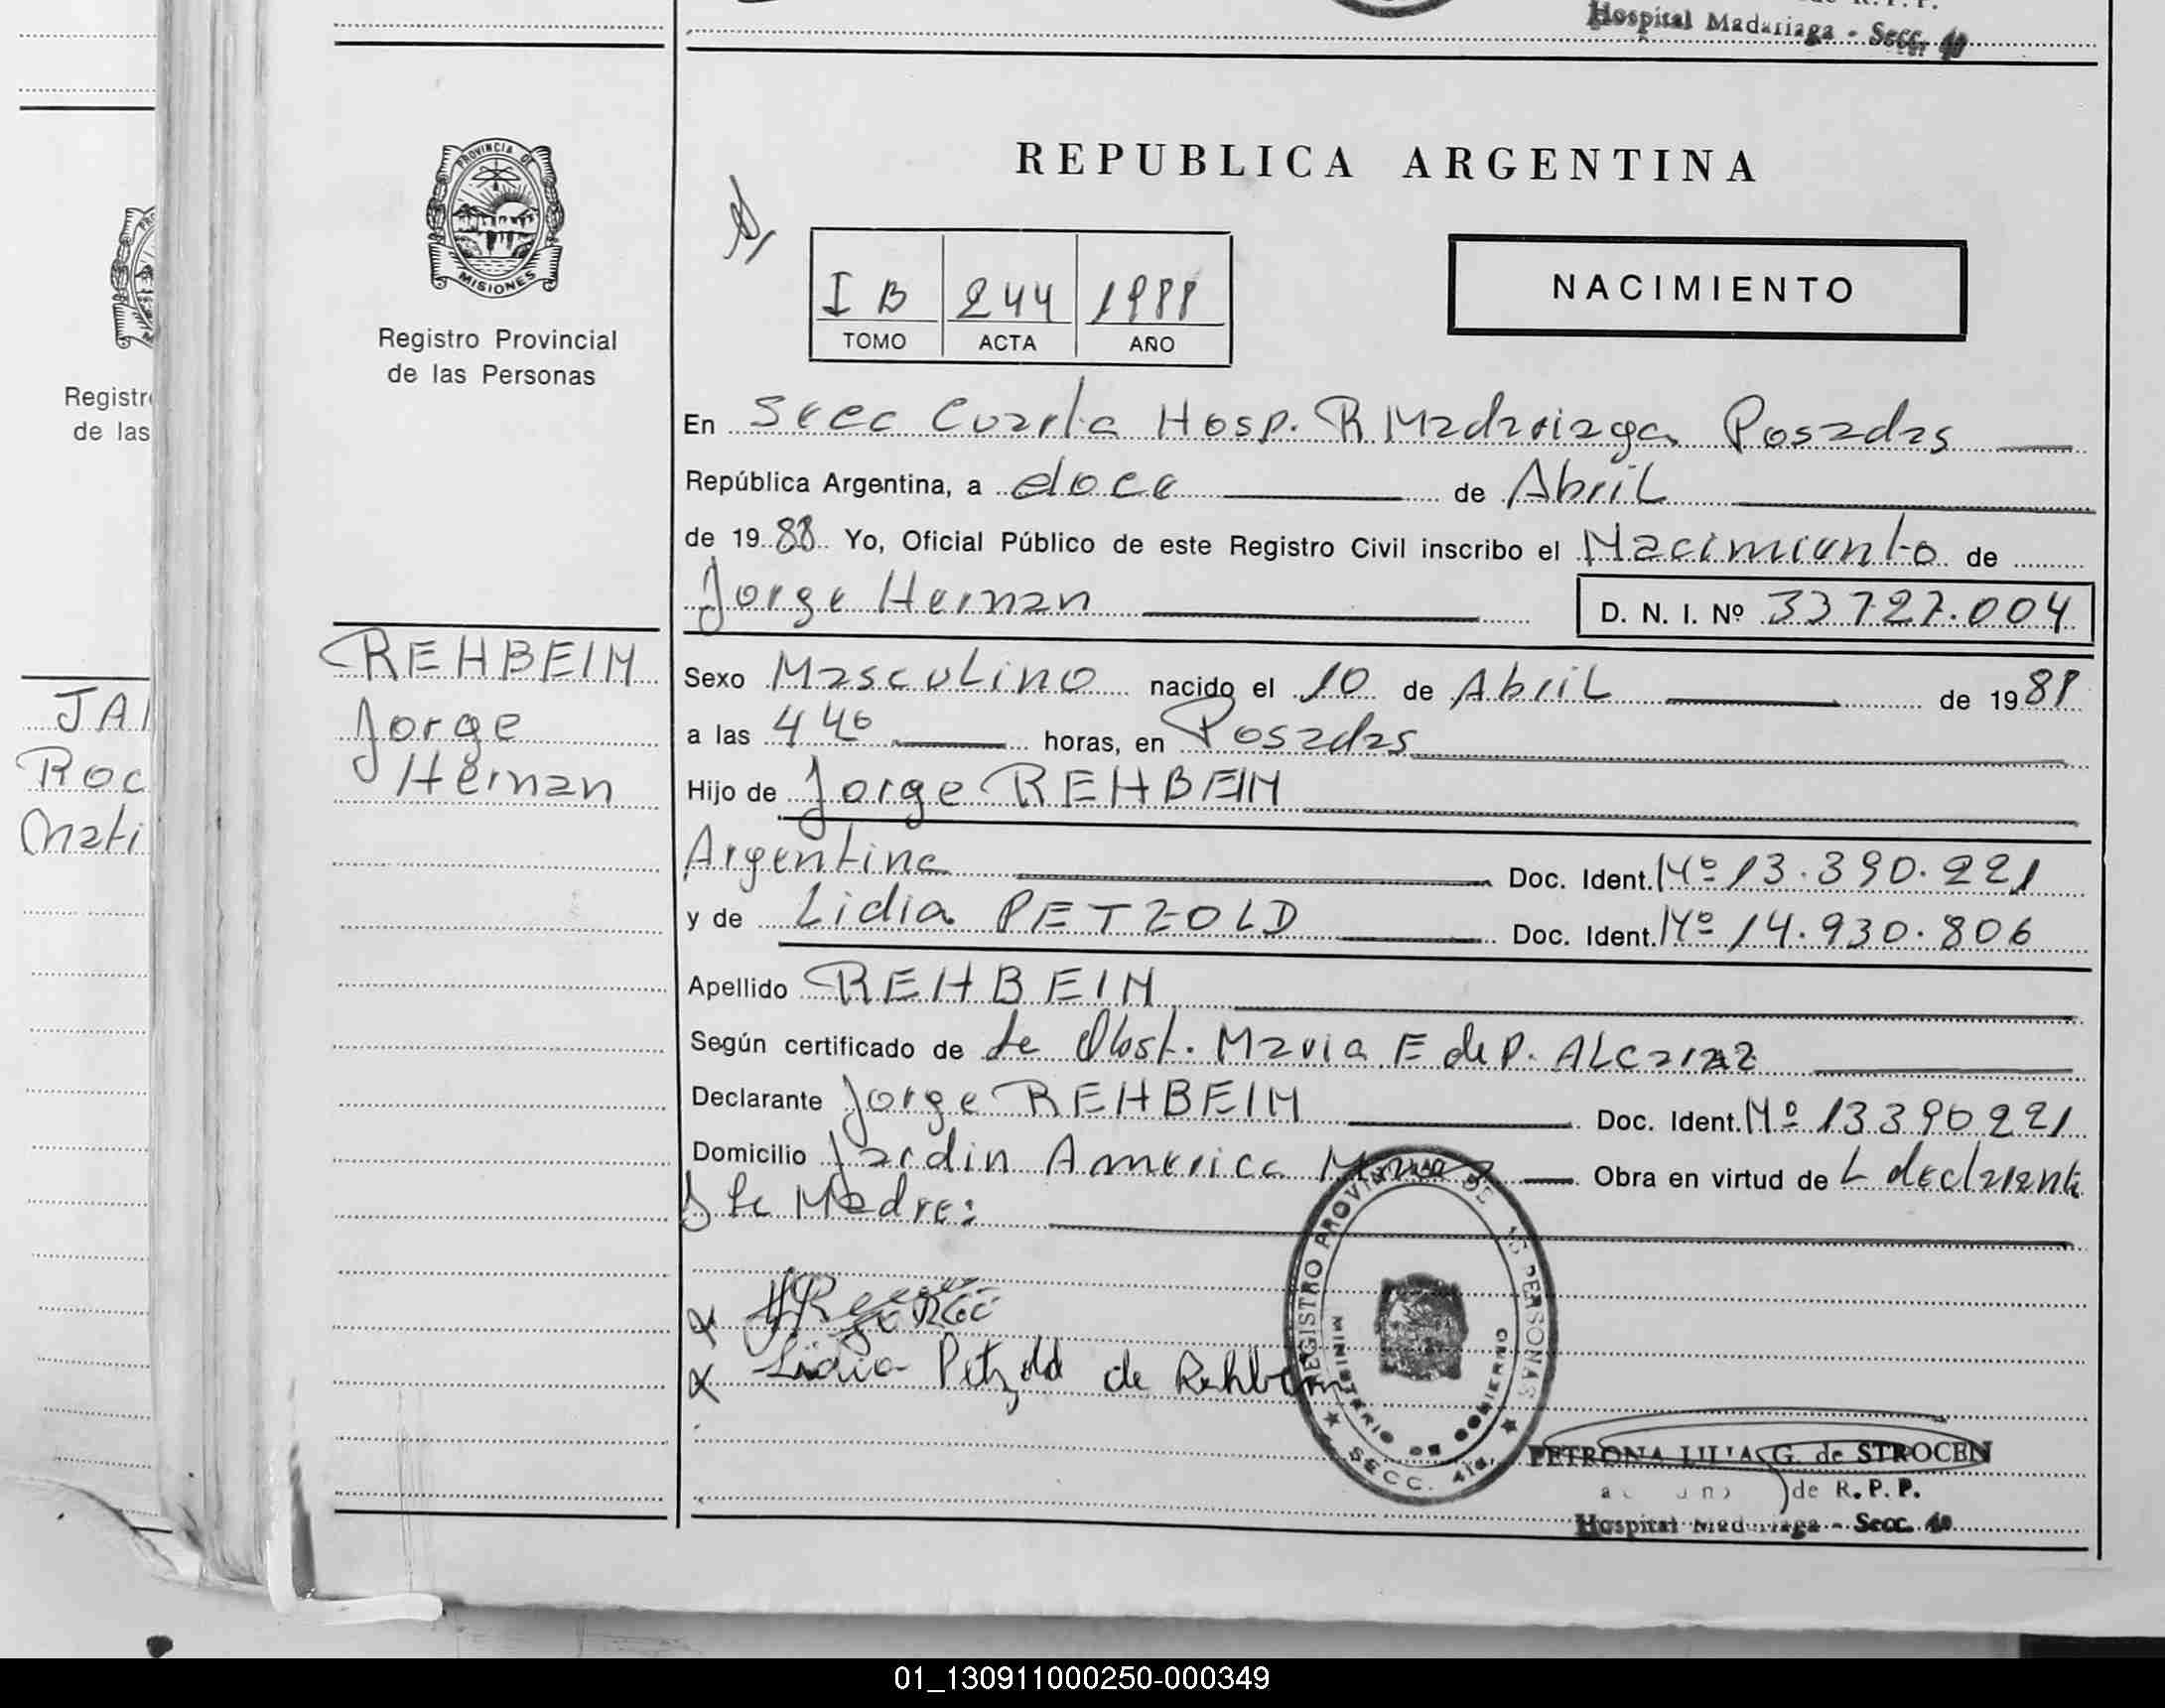 Hospital Madariaga - Secc. 4a
PROVINCIA DE
MISIONES
Registro Provincial
de las Personas
REPUBLICA ARGENTINA
I B 244 1988
TOMO ACTA AÑO
NACIMIENTO
En Secc Cuarta Hosp. R Madariaga Posadas
República Argentina, a doce de Abril
de 1988 Yo, Oficial Público de este Registro Civil inscribo el Nacimiento de
Jorge Hernan
D. N. I. Nº 33727.004
REHBEIN
Jorge
Hernan
Sexo Masculino nacido el 10 de Abril de 1988
a las 4 40 horas, en Posadas
Hijo de Jorge REHBEIN
Argentina Doc. Ident. Nº 13.390.221
y de Lidia PETZOLD Doc. Ident. Nº 14.930.806
Apellido REHBEIN
Según certificado de la Obst. Maria E de P. ALCaraz
Declarante Jorge REHBEIN Doc. Ident. Nº 13390221
Domicilio Jardin America Mnes Obra en virtud de L declarante
y la Madre:
Lidia Petzold de Rehbein
REGISTRO PROVINCIAL DE LAS PERSONAS
MINISTERIO DE GOBIERNO
SECC. 4ta.
PETRONA LILIA G. de STROCEN
de R. P. P.
Hospital Madariaga - Secc. 4a
Registr
de las
JA
Roc
Mati
01_130911000250-000349